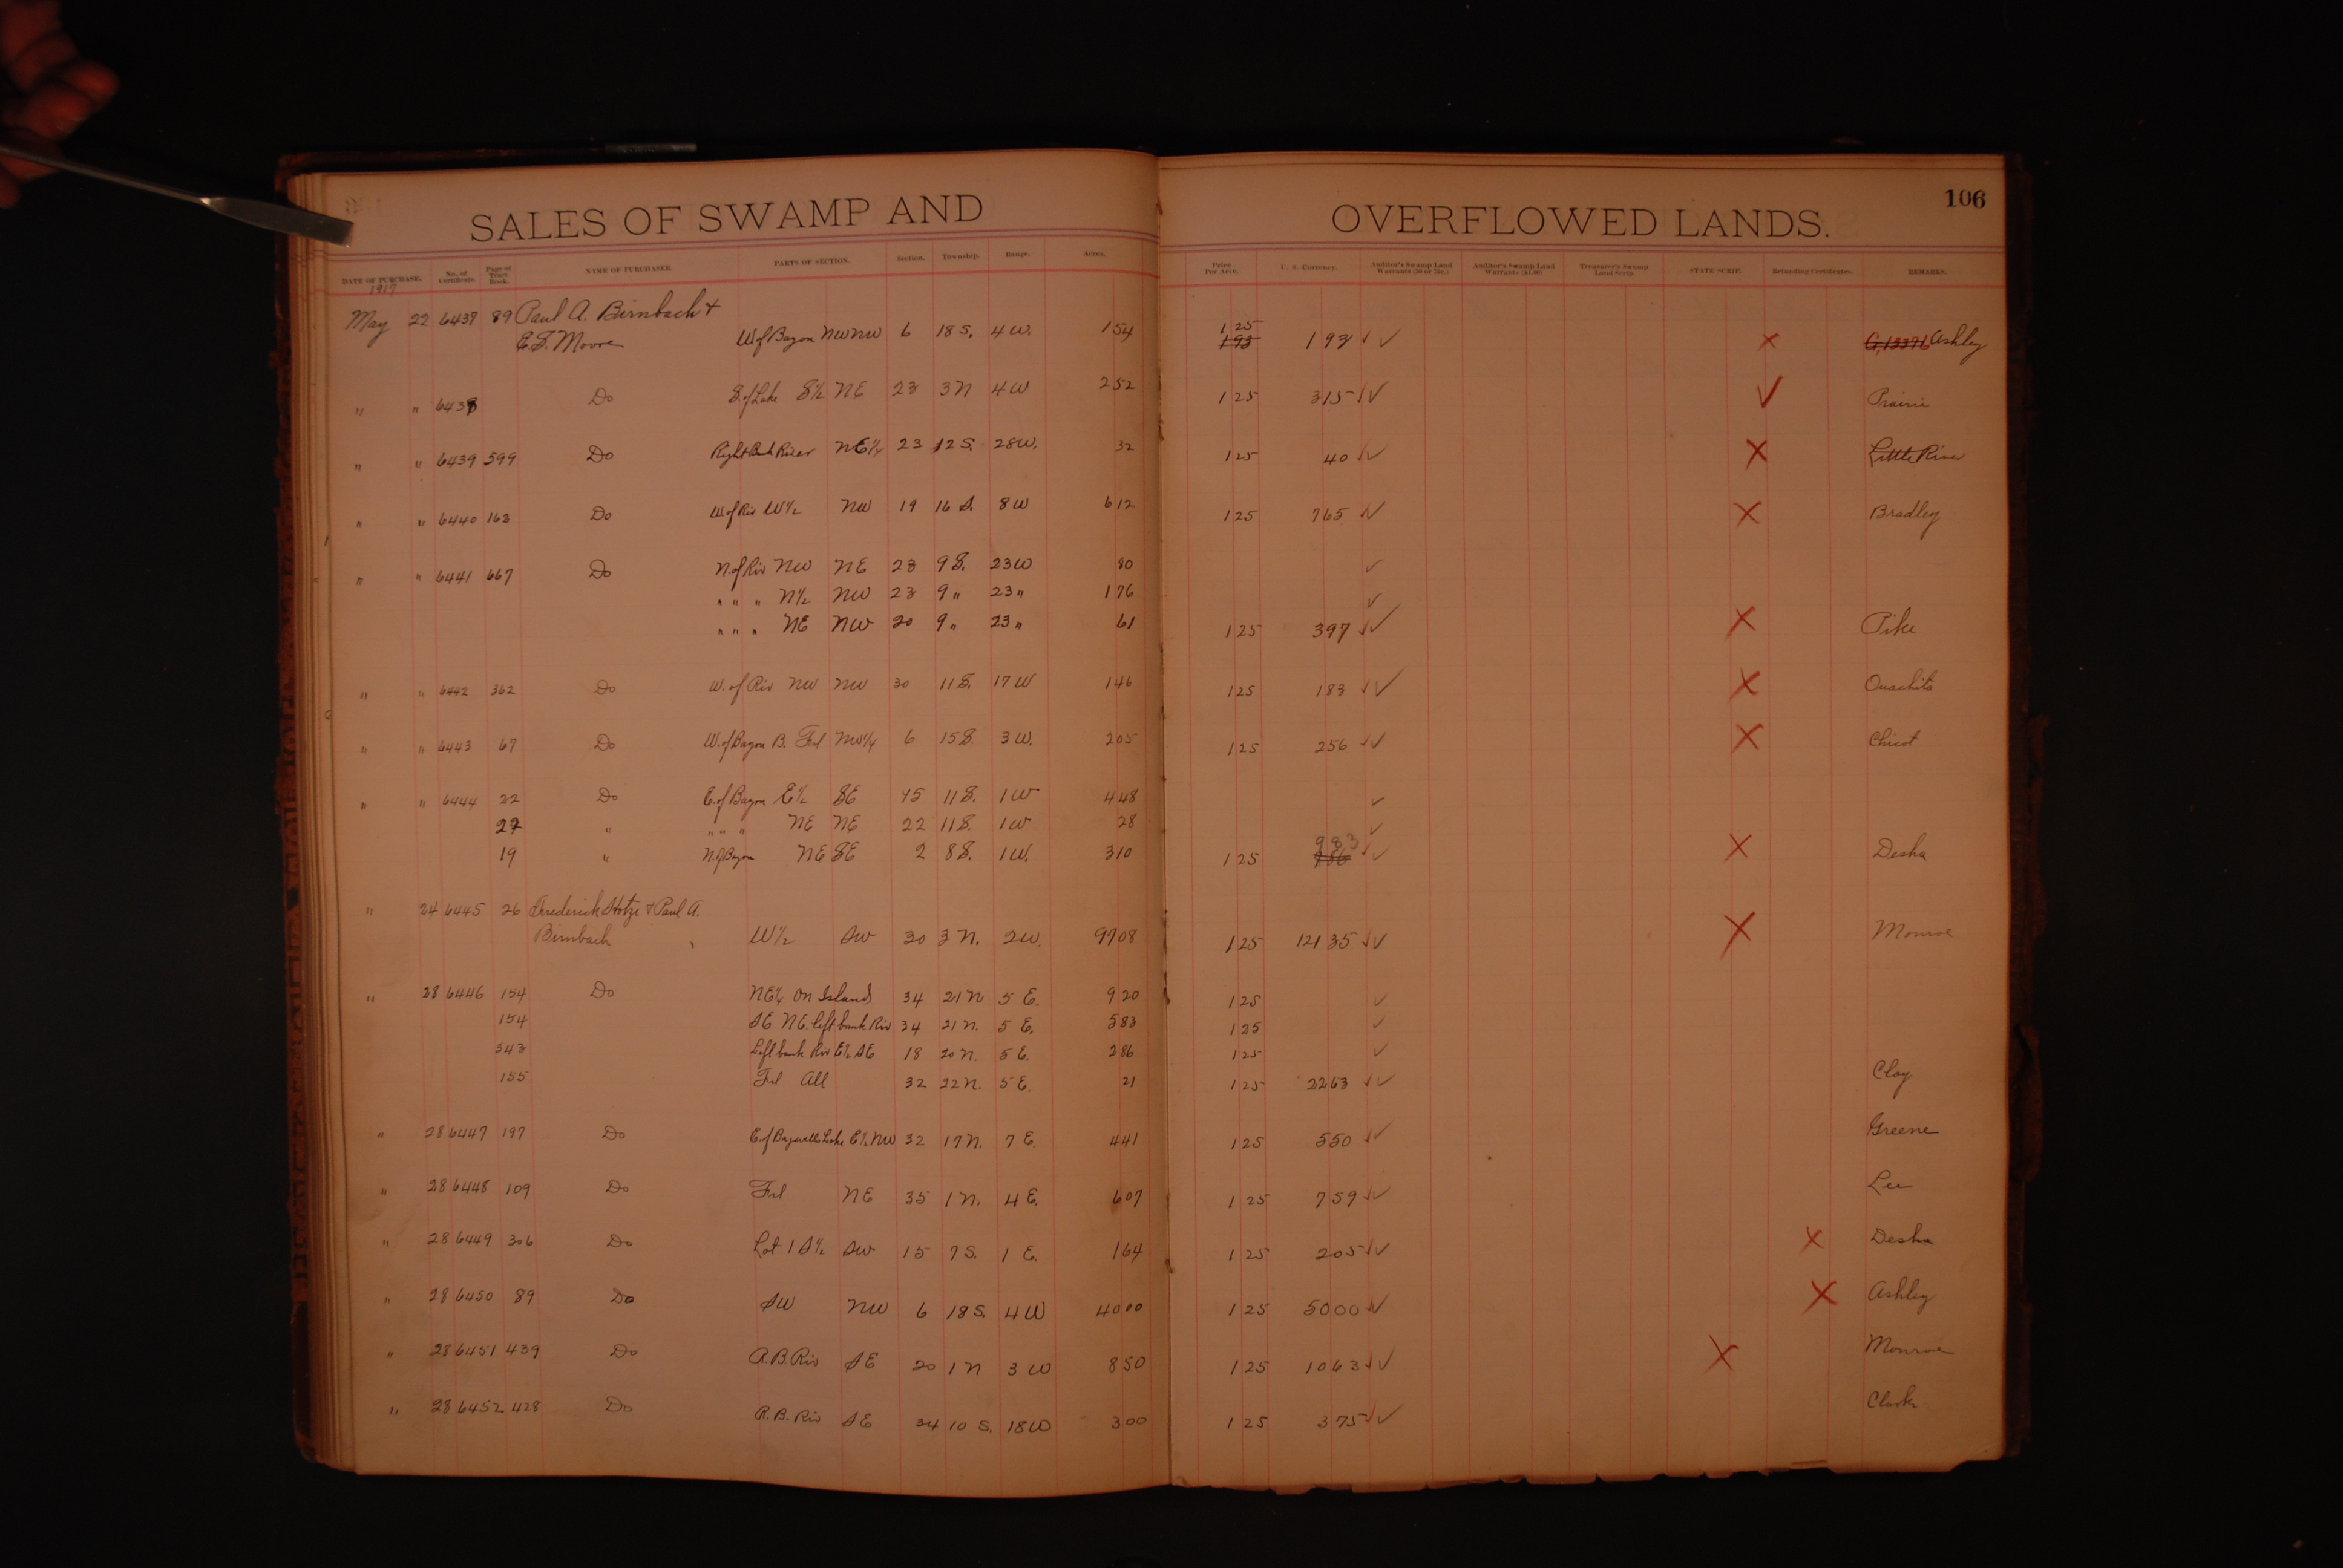 SALES OF SWAMP AND OVERFLOWED LANDS.
106
DATE OF PURCHASE. No. of Certificate. Page of Tract Book. NAME OF PURCHASER. PARTS OF SECTION. Section. Township. Range. Acres. Price Per Acre. U. S. Currency. Auditor's Swamp Land Warrants (50 or 75c.) Auditor's Swamp Land Warrants ($1.00) Treasurer's Swamp Land Scrip. STATE SCRIP. Refunding Certificates. REMARKS.
1917
May 22 6437 89 Paul A. Birnbach &
E. F. Moore W of Bayou NW NW 6 18 S. 4 W. 1 54 1 25 1 93 Ashley
" " 6438 Do S. of Lake S½ NE 23 3 N 4 W 2 52 1 25 3 15 Prairie
" " 6439 599 Do Right Bank River NE¼ 23 12 S. 28 W. 32 1 25 40 Little River
" " 6440 163 Do W of Riv W½ NW 19 16 S. 8 W 6 12 1 25 7 65 Bradley
" " 6441 667 Do N. of Riv NW NE 23 9 S. 23 W 80
" " " N½ NW 23 9 " 23 " 1 76
" " " NE NW 20 9 " 23 " 61 1 25 3 97 Pike
" " 6442 362 Do W. of Riv NW NW 30 11 S. 17 W 1 46 1 25 1 83 Ouachita
" " 6443 67 Do W. of Bayou B. Frl NW¼ 6 15 S. 3 W. 2 05 1 25 2 56 Chicot
" " 6444 22 Do E. of Bayou E½ SE 15 11 S. 1 W 4 48
27 " " " " NE NE 22 11 S. 1 W 28
19 " N. of Bayou NE SE 2 8 S. 1 W. 3 10 1 25 9 83 Desha
" 24 6445 26 Frederick Hotze & Paul A.
Birnbach W½ SW 30 3 N. 2 W. 97 08 1 25 121 35 Monroe
" 28 6446 154 Do NE¼ on Island 34 21 N 5 E. 9 20 1 25
154 SE NE. left bank Riv 34 21 N. 5 E. 5 83 1 25
343 Left bank Riv E½ SE 18 20 N. 5 E. 2 86 1 25
155 Frl All 32 22 N. 5 E. 21 1 25 22 63 Clay
" 28 6447 197 Do E of Lake E½ NW 32 17 N. 7 E. 4 41 1 25 5 50 Greene
" 28 6448 109 Do Frl NE 35 1 N. 4 E. 6 07 1 25 7 59 Lee
" 28 6449 306 Do Lot 1 S½ SW 15 7 S. 1 E. 1 64 1 25 2 05 Desha
" 28 6450 89 Do SW NW 6 18 S. 4 W 40 00 1 25 50 00 Ashley
" 28 6451 439 Do R. B. Riv SE 20 1 N 3 W 8 50 1 25 10 63 Monroe
" 28 6452 428 Do R. B. Riv SE 34 10 S. 18 W 3 00 1 25 3 75 Clark